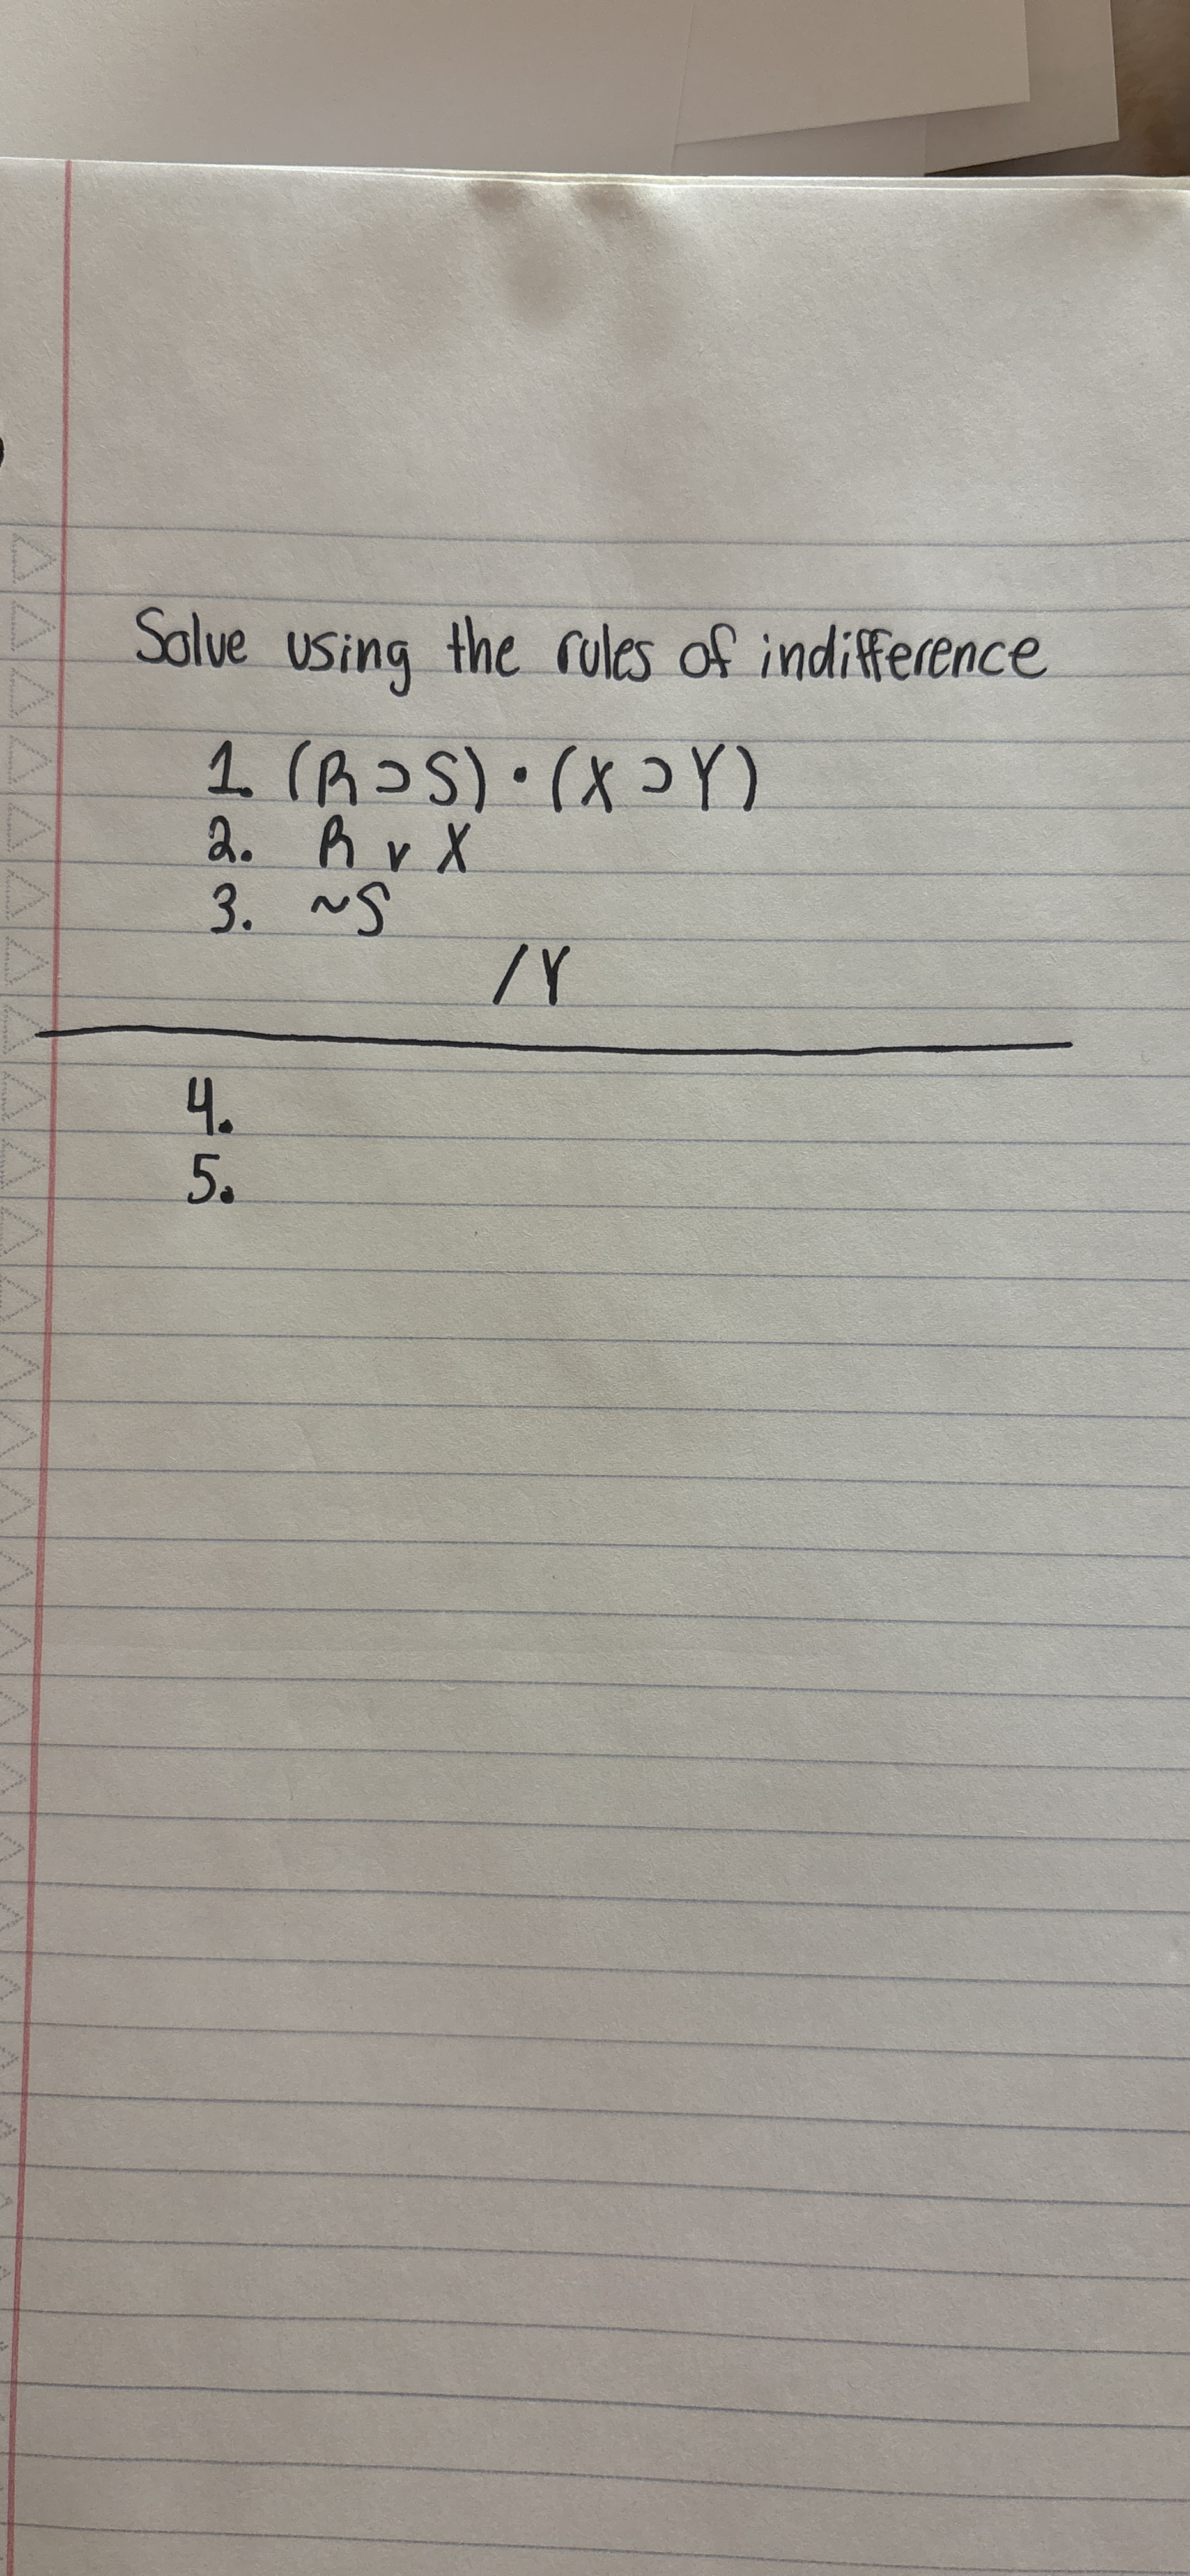 Solve using the rules of indifference
1. (R ⊃ S) • (X ⊃ Y)
2. R v X
3. ~S
/Y
4.
5.